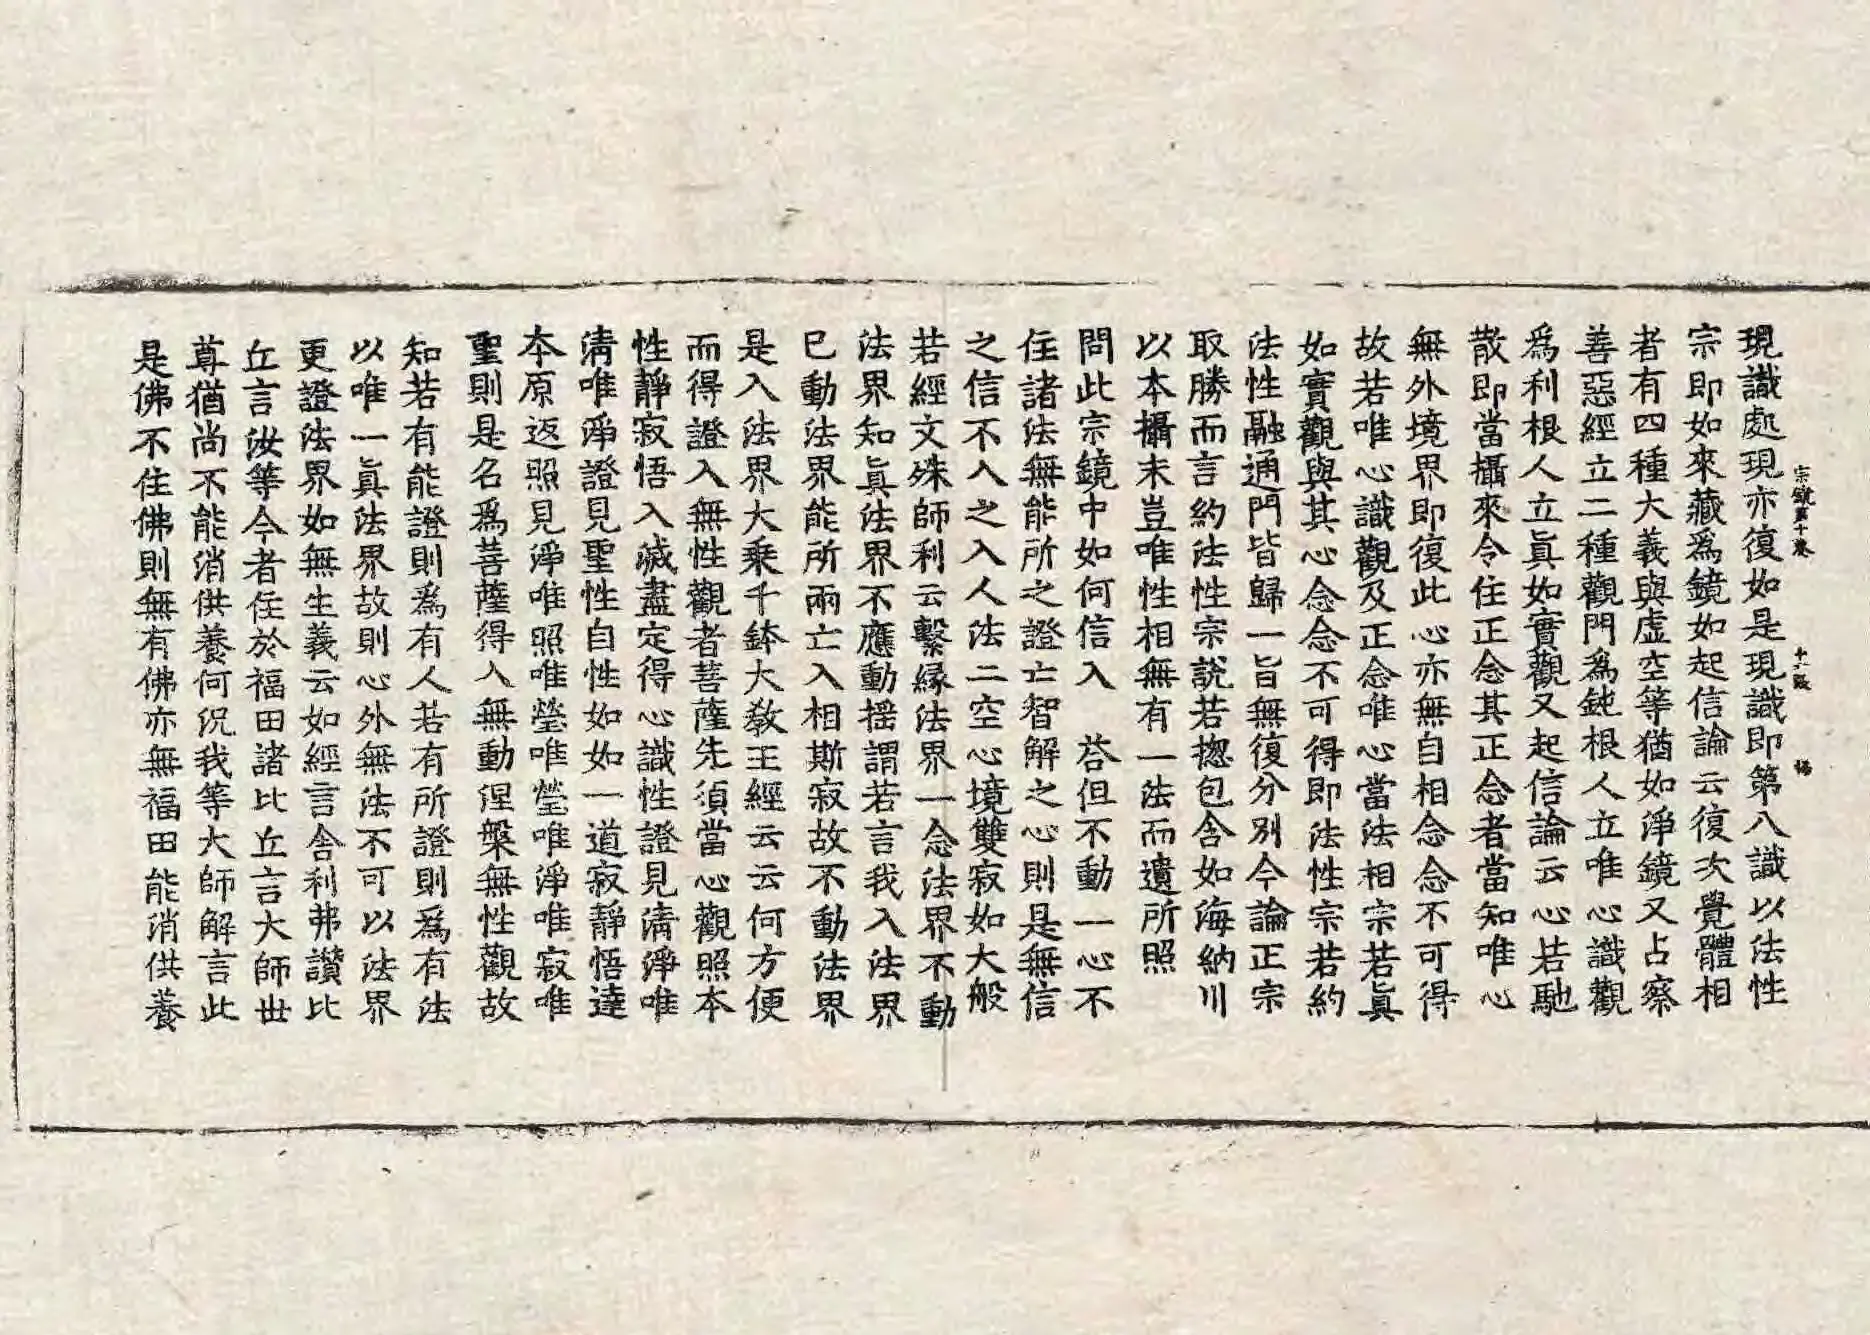 現識處現亦復如是現識即第八識以法性
宗鏡第十卷　十一張
宗即如來藏爲鏡如起信論云復次覺體相
者有四種大義與虛空等猶如淨鏡又占察
善惡經立二種觀門爲鈍根人立唯心識觀
爲利根人立眞如實觀又起信論云心若馳
散即當攝來令住正念其正念者當知唯心
無外境界即復此心亦無自相念念不可得
故若唯心識觀及正念唯心當法相宗若眞
如實觀與其心念念不可得即法性宗若約
法性融通門皆歸一旨無復分別今論正宗
取勝而言約法性宗說若揔包含如海納川
以本攝末豈唯性相無有一法而遺所照
問此宗鏡中如何信入　荅但不動一心不
住諸法無能所之證亡智解之心則是無信
之信不入之入人法二空心境雙寂如大般
若經文殊師利云繫緣法界一念法界不動
法界知眞法界不應動搖謂若言我入法界
已動法界能所兩亡入相斯寂故不動法界
是入法界大乘千鉢大敎王經云云何方便
而得證入無性觀者菩薩先須當心觀照本
性靜寂悟入滅盡定得心識性證見清淨唯
清唯淨證見聖性自性如如一道寂靜悟達
本原返照見淨唯照唯瑩唯瑩唯淨唯寂唯
聖則是名爲菩薩得入無動涅槃無性觀故
知若有能證則爲有人若有所證則爲有法
以唯一眞法界故則心外無法不可以法界
更證法界如無生義云如經言舍利弗讚比
丘言汝等今者住於福田諸比丘言大師世
尊猶尚不能消供養何況我等大師解言此
是佛不住佛則無有佛亦無福田能消供養